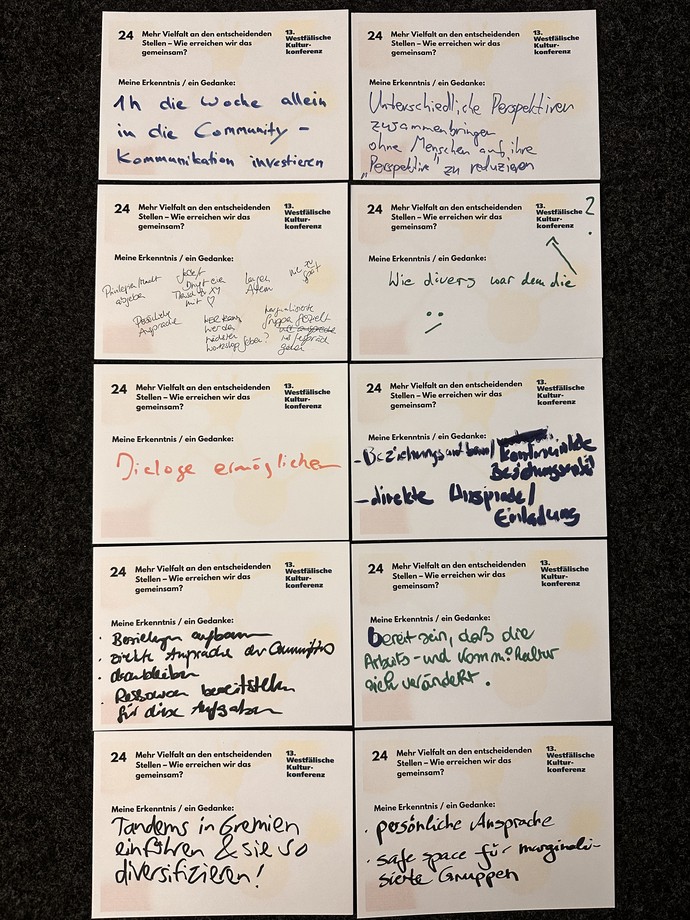 24 Mehr Vielfalt an den entscheidenden
Stellen – Wie erreichen wir das
gemeinsam?
13.
Westfälische
Kultur-
konferenz
Meine Erkenntnis / ein Gedanke:
1h die Woche allein
in die Community –
Kommunikation investieren
24 Mehr Vielfalt an den entscheidenden
Stellen – Wie erreichen wir das
gemeinsam?
13.
Westfälische
Kultur-
konferenz
Meine Erkenntnis / ein Gedanke:
Unterschiedliche Perspektiven
zusammenbringen
ohne Menschen auf ihre
„Perspektive" zu reduzieren
24 Mehr Vielfalt an den entscheidenden
Stellen – Wie erreichen wir das
gemeinsam?
13.
Westfälische
Kultur-
konferenz
Meine Erkenntnis / ein Gedanke:
Privilegien/Macht
abgeben
langen
Atem
Persönliche
Ansprache
wer kann
werden
nächsten
Workshop geben?
marginalisierte
Gruppen gezielt
ins Gespräch
gehen
24 Mehr Vielfalt an den entscheidenden
Stellen – Wie erreichen wir das
gemeinsam?
13.
Westfälische
Kultur-
konferenz
?
Meine Erkenntnis / ein Gedanke:
Wie divers war denn die
24 Mehr Vielfalt an den entscheidenden
Stellen – Wie erreichen wir das
gemeinsam?
13.
Westfälische
Kultur-
konferenz
Meine Erkenntnis / ein Gedanke:
Dialoge ermöglichen
24 Mehr Vielfalt an den entscheidenden
Stellen – Wie erreichen wir das
gemeinsam?
13.
Westfälische
Kultur-
konferenz
Meine Erkenntnis / ein Gedanke:
- Beziehungsaufbau/ kontinuierliche
- direkte Ansprache/
Einladung
24 Mehr Vielfalt an den entscheidenden
Stellen – Wie erreichen wir das
gemeinsam?
13.
Westfälische
Kultur-
konferenz
Meine Erkenntnis / ein Gedanke:
· Beziehungen aufbauen
· direkte Ansprache der Communities
· dranbleiben
· Ressourcen bereitstellen
für diese Aufgaben
24 Mehr Vielfalt an den entscheidenden
Stellen – Wie erreichen wir das
gemeinsam?
13.
Westfälische
Kultur-
konferenz
Meine Erkenntnis / ein Gedanke:
bereit sein, daß die
Arbeits- und Komm.kultur
sich verändert.
24 Mehr Vielfalt an den entscheidenden
Stellen – Wie erreichen wir das
gemeinsam?
13.
Westfälische
Kultur-
konferenz
Meine Erkenntnis / ein Gedanke:
Tandems in Gremien
einführen & sie so
diversifizieren!
24 Mehr Vielfalt an den entscheidenden
Stellen – Wie erreichen wir das
gemeinsam?
13.
Westfälische
Kultur-
konferenz
Meine Erkenntnis / ein Gedanke:
· persönliche Ansprache
· safe space für marginali-
sierte Gruppen